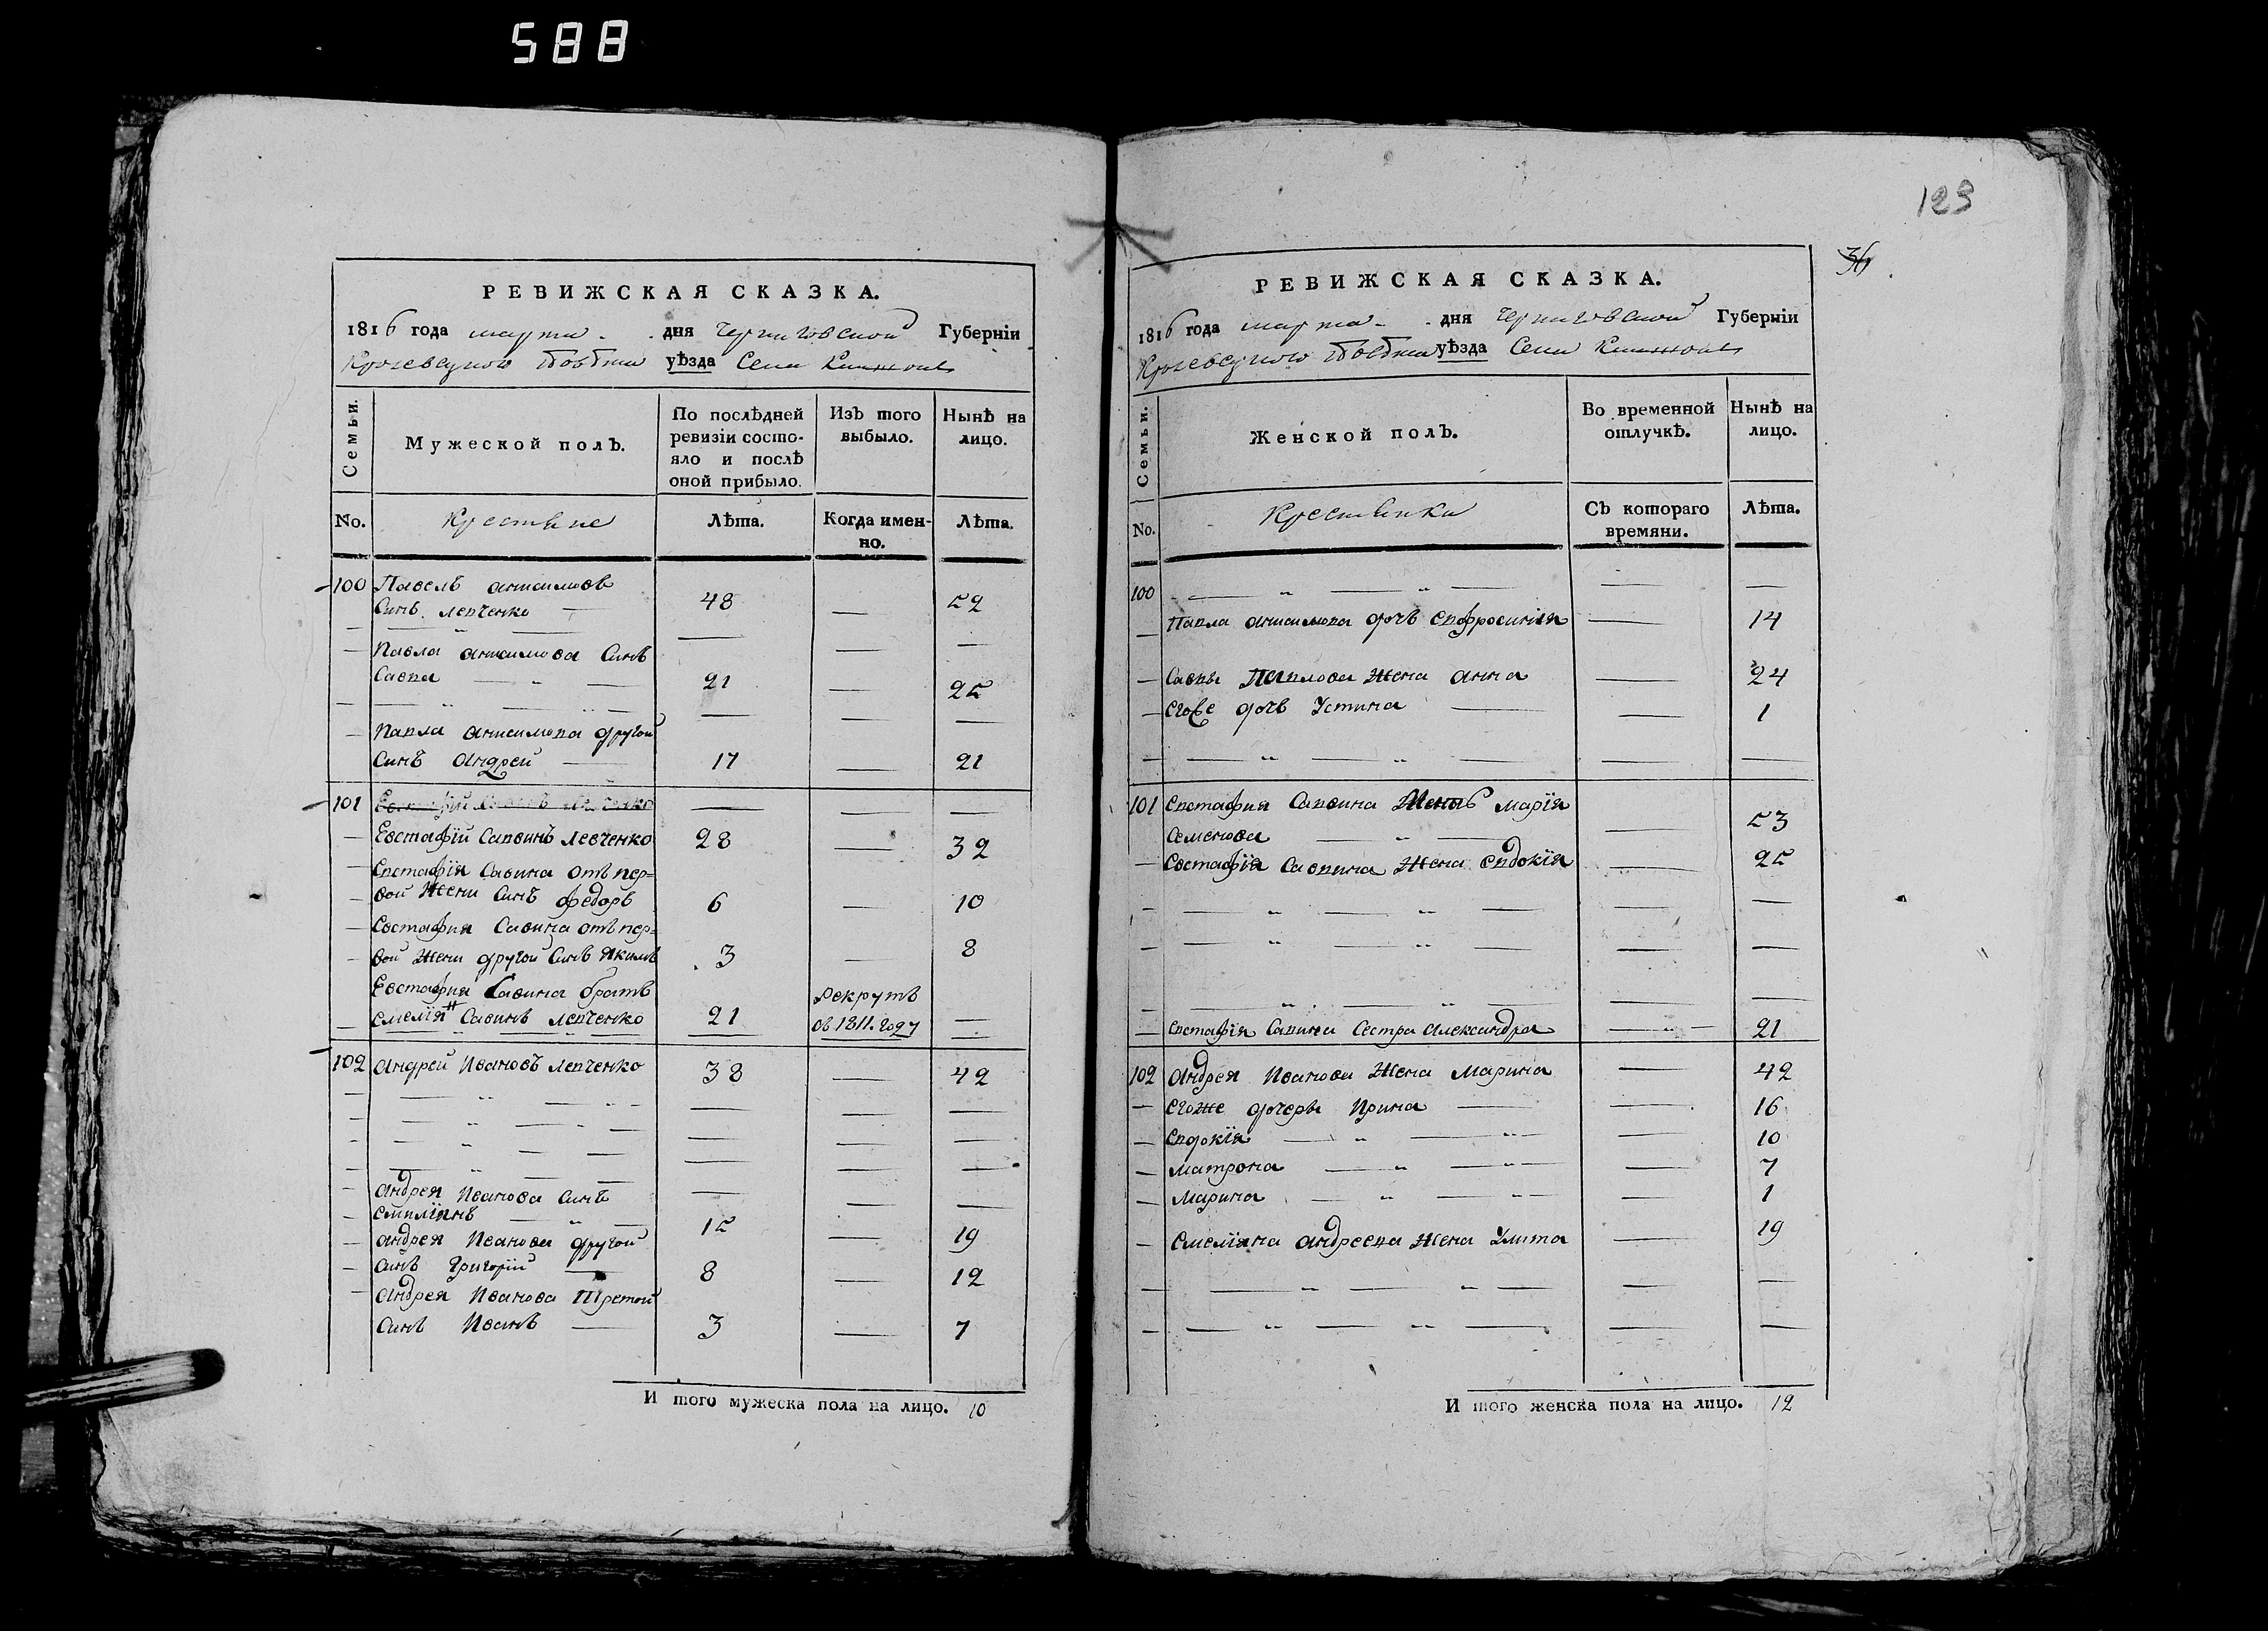 588
РЕВИЖСКАЯ СКАЗКА.
1816 года марта дня Черниговской Губерніи
уѣзда Села
Семьи.
Мужеской полъ.
По послѣдней ревизіи состо-
яло и послѣ
оной прибыло.
Изъ того выбыло.
Нынѣ на лицо.
No.
Крестьяне
Лѣта.
Когда имен-
но.
Лѣта.
100 Павелъ анисимовъ
Синъ левченко — 48 — 52
Павла анисимова Синъ
Савва — 21 — 25
Павла анисимова другой
Синъ андрей — 17 — 21
101
Евстафій Саввинъ левченко 28 — 32
Евстафія Савина отъ пер=
вой жени Синъ федоръ 6 — 10
Евстафия Савина отъ пер=
вой жени другой Синъ якимъ 3 — 8
Евстафия Савина братъ рекрутъ
емеліянъ Савинъ левченко 21 въ 1811. году —
102 андрей Ивановъ левченко 38 — 42
андрея Иванова Синъ
емиліянъ — 15 — 19
андрея Иванова другой
Синъ григорій — 8 — 12
андрея Иванова Третой
Синъ Иванъ — 3 — 7
И того мужеска пола на лицо. 10
123
36
РЕВИЖСКАЯ СКАЗКА.
1816 года марта дня Черниговской Губерніи
уѣзда Села
Семьи.
Женской полъ.
Во временной
отлучкѣ.
Нынѣ на
лицо.
No.
Крестьянки
Съ котораго
времяни.
Лѣта.
100
Павла анисимова дочь евфросиния — 14
Саввы Павлова жена анна — 24
егоже дочь Устина — 1
101 евстафия Саввина Мать марія
Семенова — 53
евстафія Саввина жена евдокія — 25
евстафія Савина Сестра александра — 21
102 андрея Иванова жена марина — 42
егоже дочеры Ирина — 16
евдокія — 10
матрона — 7
марина — 1
емеліяна андреева жена Улита — 19
И того женска пола на лицо. 12